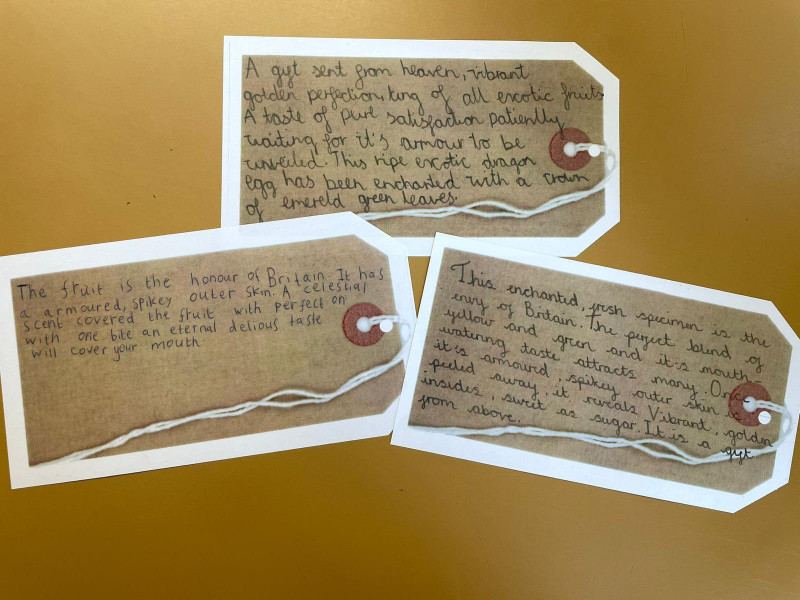 A gift sent from heaven, vibrant
golden perfection, king of all excotic fruits
A taste of pure satisfaction patiently
waiting for it's armour to be
unveiled. This ripe excotic dragon
egg has been enchanted with a crown
of emereld green leaves.
The fruit is the honour of Britain. It has
a armoured, spikey outer skin. A celestial
scent covered the fruit with perfect on
with one bite an eternal delious taste
will cover your mouth
This enchanted, fresh specimen is the
envy of Britain. The perfect blend of
yellow and green and it's mouth-
watering taste attracts many. Once
it's armoured, spikey outer skin is
peeled away, it reveals Vibrant, golden
insides, sweet as sugar. It is a gift
from above.